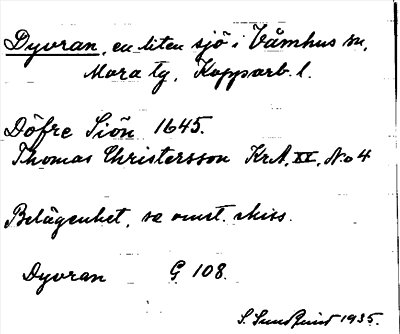 Dyvran, en liten sjö i Våmhus sn,
Mora tg, Kopparb. l.
Döfre Siön 1645.
Thomas Christersson KrA, XX, No 4
Belägenhet, se omst. skiss.
Dyvran G 108.
S. Sundquist 1935.